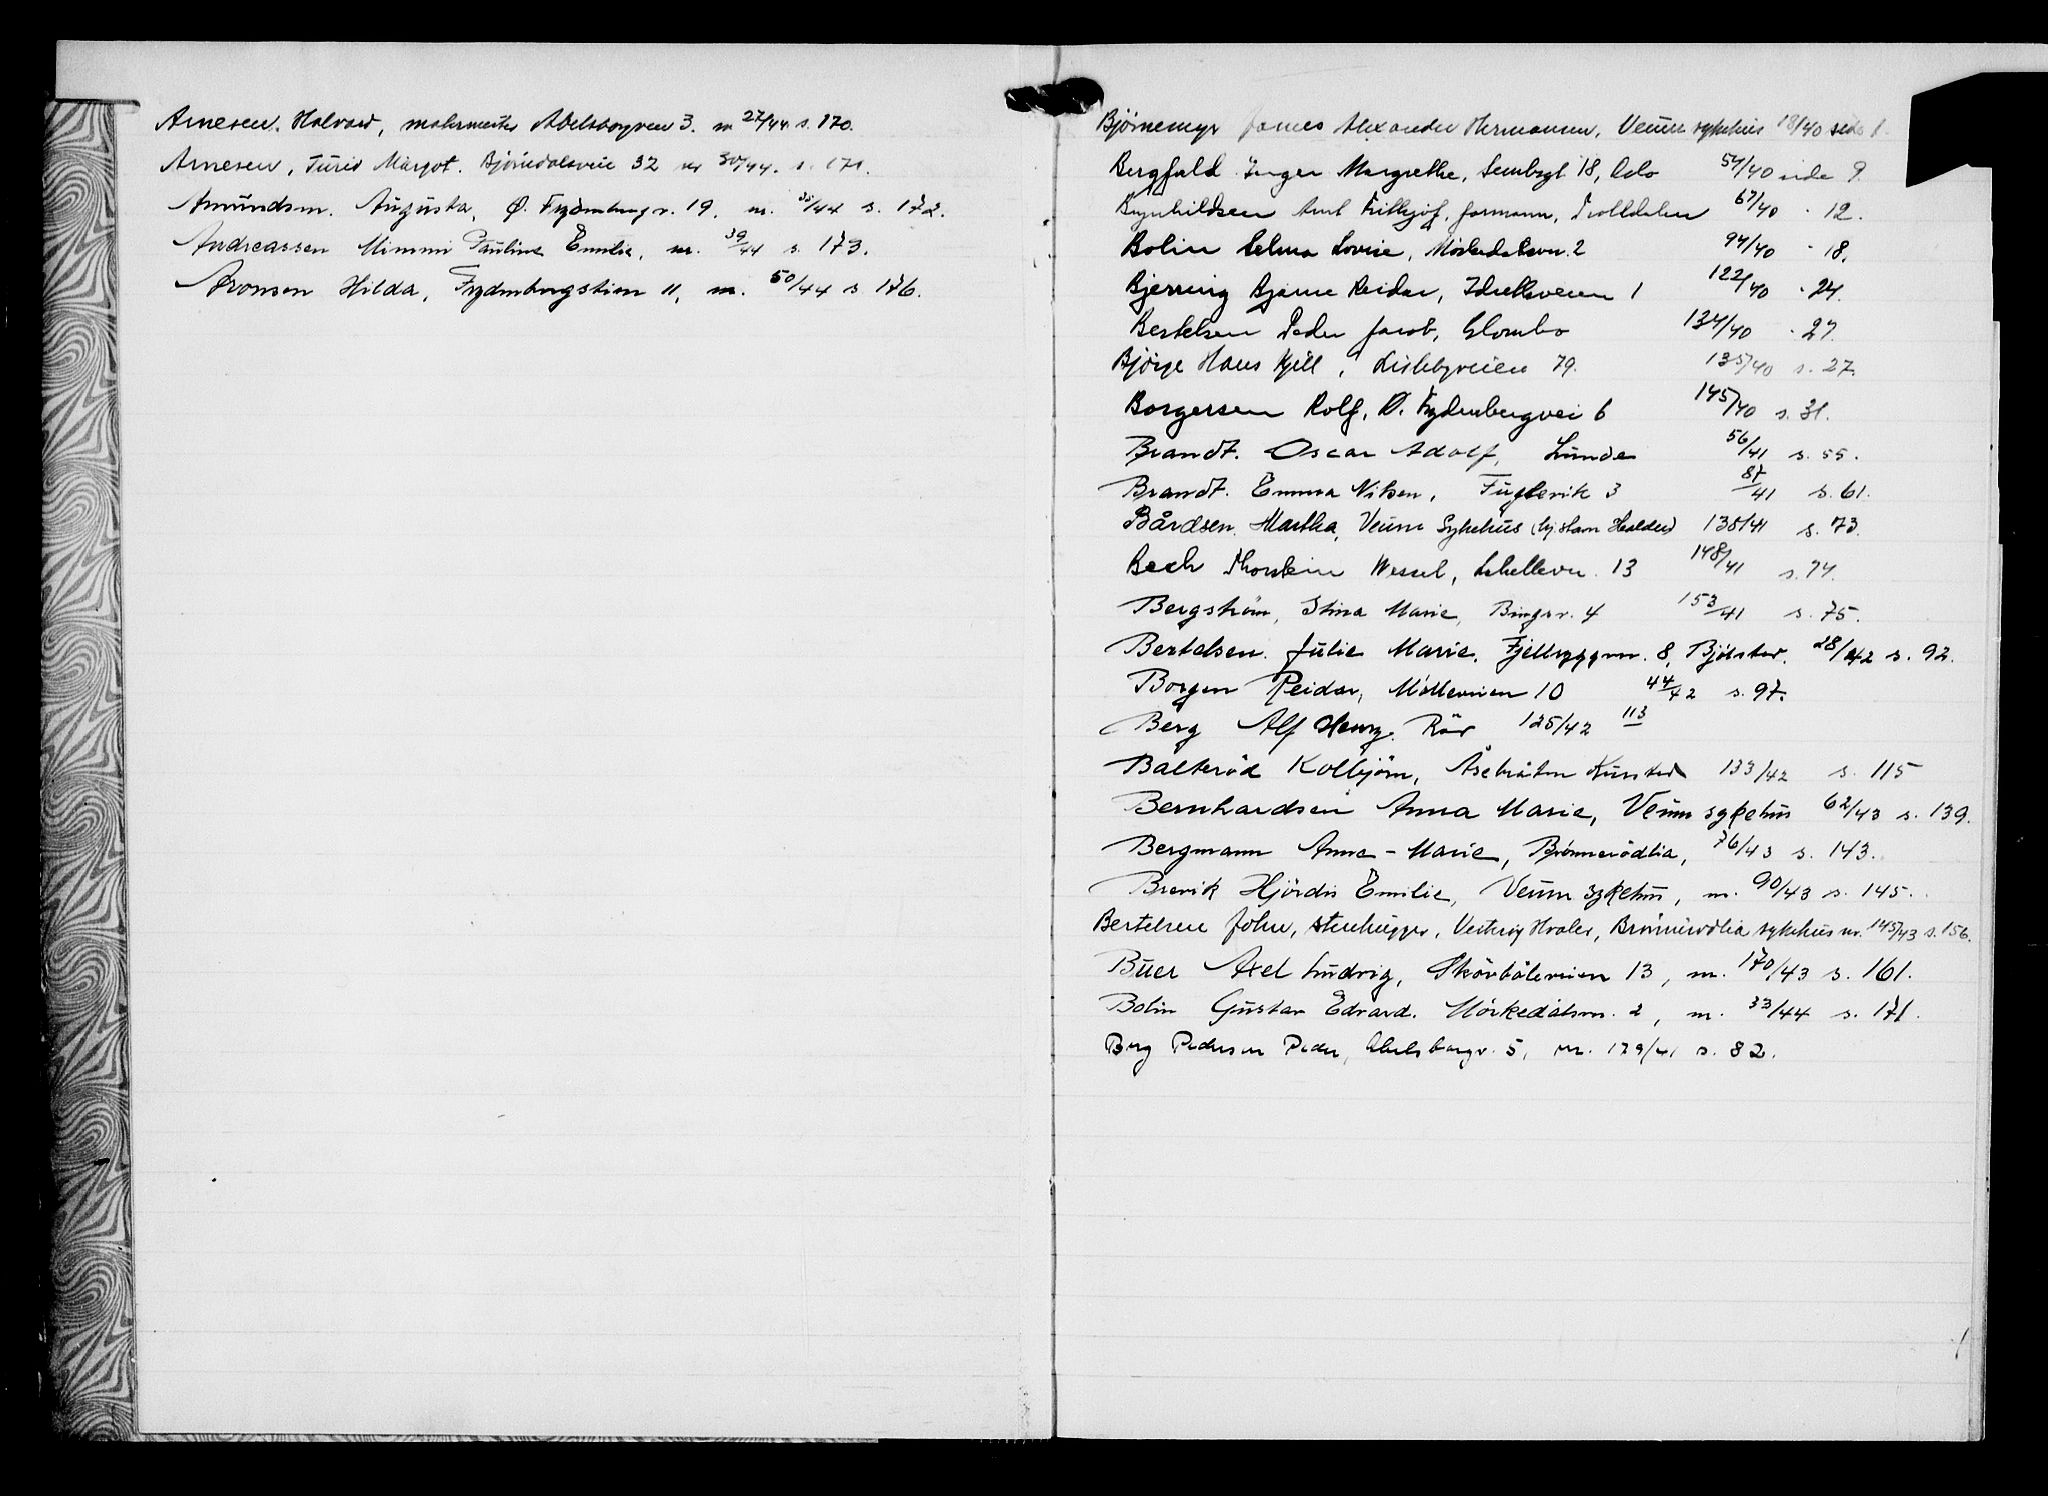 Arnesen, Halvard, malermester Abelsborgveien 3. nr 27/44 s. 170.
Arnesen, Turid Margot. Bjørnedalsveie 32 nr 30/44. s. 171.
Amundsen. Augusta, Ø. Frydenbergv. 19, nr. 32/44 s. 172.
Andreassen Mimmi Pauline Emilie, nr. 39/44 s. 173.
Aronsen Hilda, Frydenbergstien 11, nr. 50/44 s 176.
Bjørnemyr James Alexander Hermansen, Veum sykehus 18/40 side 1.
Bergfald Inger Margrethe, Sembsgt 18, Oslo 54/40 side 9.
Brynhildsen Arnt Fritjof, formann, Trolldalen 67/40 - 12.
Bolin Selma Lovise, Mørkedalsvn. 2 94/40 - 18.
Bjerring Bjarne Reidar, Idrettsveien 1 122/40 - 24.
Bertelsen Peder Jacob, Glombo 134/40 - 27.
Bjørge Hans Kjell, Lislebyveien 79. 135/40 s. 27.
Borgersen Rolf, Ø. Frydenbergvei 6 145/40 s. 31.
Brandt. Oscar Adolf, Lunde 56/41 s. 55.
Brandt. Emma Nilsen, Fuglevik 3 87/41 s. 61.
Bårdsen, Martha, Veum Sykehus (hj.ham Halden) 138/41 s. 73.
Bech Thorstein Wessel, 13 148/41 s. 74.
Bergström, Stina Marie, Bingsv. 4 153/41 s. 75.
Bertelsen. Julie Marie, Fjellryggvn. 8, Bjölstad. 28/42 s. 92.
Borgen Reidar, Mølleveien 10 44/42 s. 97.
Berg Alf Henry. Rör 125/42 113
Balteröd Kolbjörn, Åsebråten Kunsted 133/42 s. 115
Bernhardsen Anna Marie, Veum sykehus 62/43 s. 139.
Bergmann Anne-Marie, Brönnerödlia, 76/43 s. 143.
Brevik Hjördis Emilie, Veum sykehus, nr. 90/43 s. 145.
Bertelsen John, stenhugger, Vesterøy Hvaler, Brønnerødlia sykehus nr. 145/43 s. 156.
Buer Axel Ludvig, Skårbölveien 13, nr. 170/43 s. 161.
Bolin Gustav Edvard. Mörkedalsvn. 2, nr. 33/44 s. 171.
Berg Pedersen Peder, Abelsborgv. 5, nr. 179/41 s. 82.